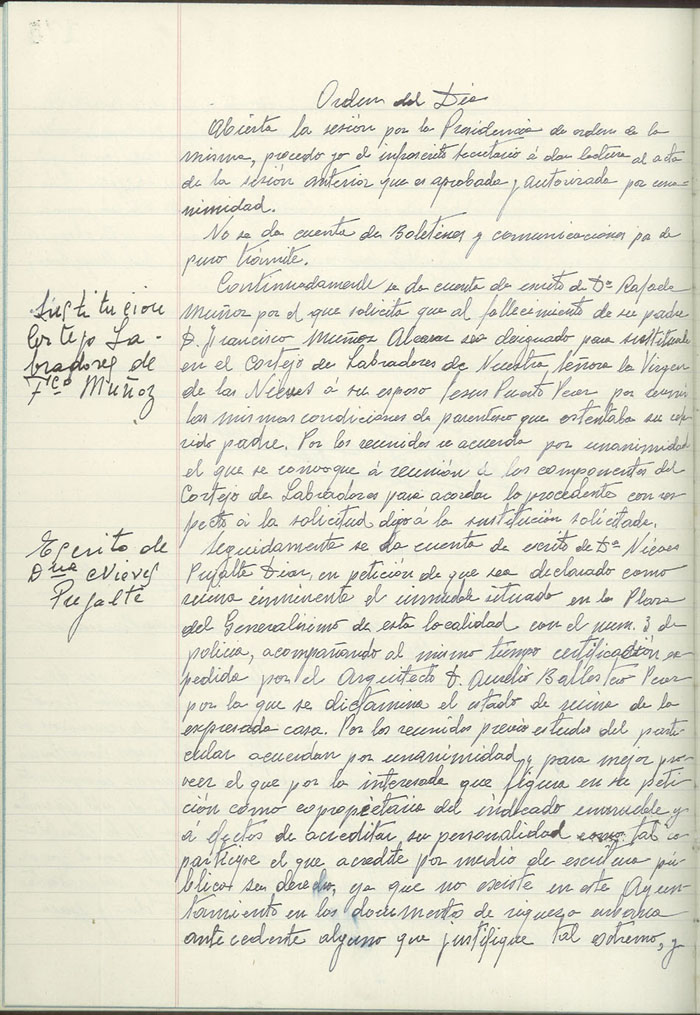 Orden del Dia
Abierta la sesión por la Presidencia de orden de la
misma, procedo yo el infrascrito Secretario á dar lectura al acta
de la sesión anterior que es aprobada y autorizada por una-
nimidad.
No se da cuenta de Boletines y comunicaciones pa de
puro trámite.
Continuadamente se da cuenta de escrito de Dª Rafaela
Muñoz por el que solicita que al fallecimiento de su padre
D. Francisco Muñoz Alcaraz sea designado para sustituirle
en el Cortejo de Labradores de Nuestra Señora la Virgen
de las Nieves á su esposo Jesus Puerto Perez por reunir
las mismas condiciones de parentesco que ostentaba su
rido padre. Por los reunidos se acuerda por unanimidad
el que se convoque á reunión á los componentes del
Cortejo de Labradores para acordar lo procedente con res-
pecto á la solicitud digo á la sustitución solicitada.
Seguidamente se da cuenta de escrito de Dª Nieves
Pujalte Diaz, en petición de que sea declarado como
ruina inminente el inmueble situado en la Plaza
del Generalisimo de esta localidad con el num. 3 de
policia, acompañando al mismo tiempo certificación ex-
pedida por el Arquitecto D. Aurelio Ballester Perez
por la que se dictamina el estado de ruina de la
expresada casa. Por los reunidos previo estudio del parti-
cular acuerdan por unanimidad y para mejor pro-
veer el que por la interesada que figura en su peti-
ción como copropietaria del indicado inmueble y
á efectos de acreditar su personalidad como tal co
participe el que acredite por medio de escritura pú-
blica su derecho, ya que no existe en este Ayun-
tamiento en los documentos de riqueza urbana
antecedente alguno que justifique tal extremo, y
Sustitucion
Cortejo La-
bradores de
Fco Muñoz
Escrito de
Dña Nieves
Pujalte